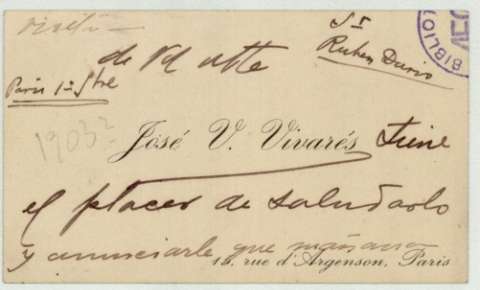 visitó
Sr
Ruben Dario
de Vd atte
Paris 1º Sbre
1903?
José V. Vivarés tiene
el placer de saludarlo
y anunciarle que mañana
15, rue d'Argenson, Paris
BIBLIO